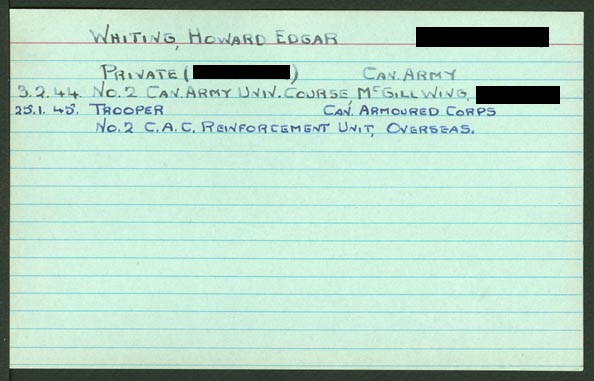 WHITING, HOWARD EDGAR
PRIVATE ( ) CAN. ARMY
3.2.44. NO.2 CAN. ARMY UNIV. COURSE, McGILL WING,
25.1.45. TROOPER CAN. ARMOURED CORPS
NO.2 C.A.C. REINFORCEMENT UNIT, OVERSEAS.